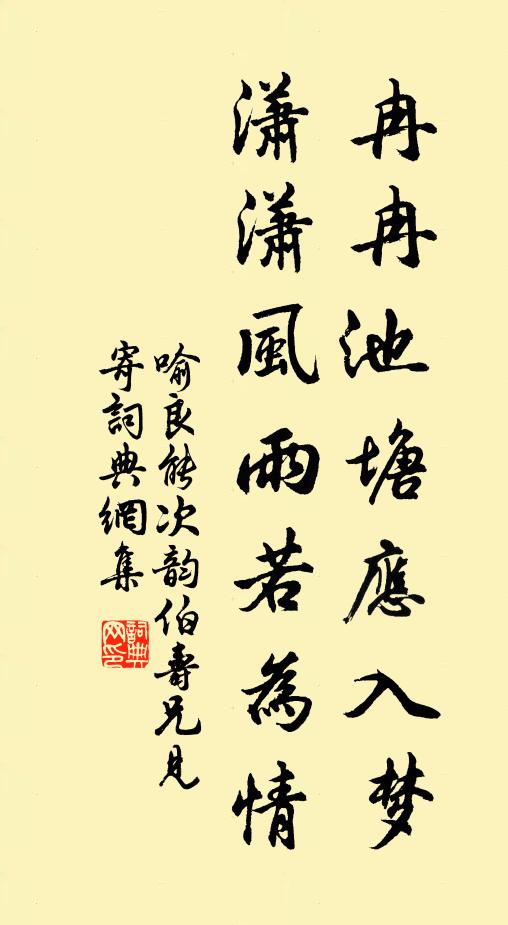 冉冉池塘應入梦
瀟瀟風雨若為情
喻良能次韵伯壽兄見
寄詞典網集
詞典网印